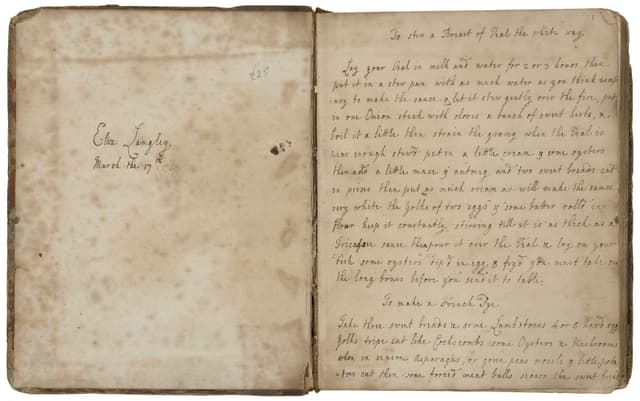 £25
Eliz Langley
March the 17th
1
To stew a Breast of Veal the white way
Lay your Veal in melk and water for 2 or 3 hours then
put it in a stew pan with as much water as you think
to make the sauce & let it stew gently over the fire, put
in one Onion stuck with cloves a bunch of sweet herbs,
boil it a little then strain the gravy when the Veal is
near enough stew'd put in a little cream & some oysters
then add a little mace & nutmeg and two sweet breads cut
in pieces then put as much cream as will make the sauce
very white the Yolks of two eggs & some butter rolld in
flour keep it constantly stirring till it is as thick as a
Fricasee sauce then pour it over the Veal & lay on your
dish some oysters dip'd in egg & fry'd you must take
the long bones before you send it to table.
To make a French Pye
Take three sweet breads & some Lambstones 4 or 5 hard egg
Yolks tripe cut like Cockscombs some Oysters & Mushrooms
when in season Asparagus, or green peas
cut then some forced meat balls season the sweet